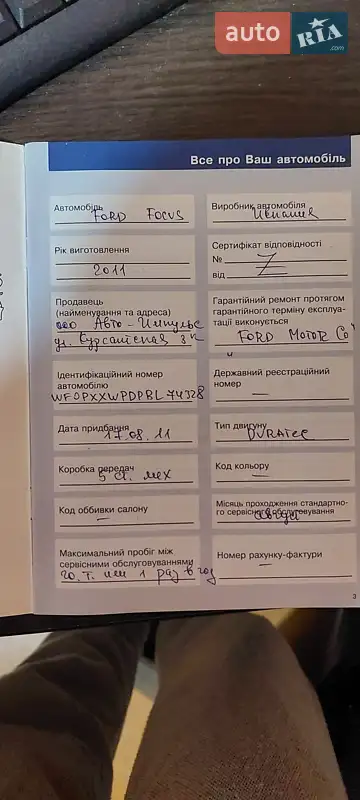 auto RIA .com
Все про Ваш автомобіль
Автомобіль
FORD FOCUS
Виробник автомобіля
Испания
Рік виготовлення
2011
Сертифікат відповідності
№
від
Продавець
(найменування та адреса)
ООО Авто-Импульс
ул. Курсантская
Гарантійний ремонт протягом
гарантійного терміну експлуа-
тації виконується
FORD MOTOR Co
Ідентифікаційний номер
автомобілю
WFOPXXWPDPBL74328
Державний реєстраційний
номер —
Дата придбання
17.08.11
Тип двигуну
DURATEC
Коробка передач
5 ст. мех
Код кольору
—
Код оббивки салону
—
Місяць проходження стандартно-
го сервісного обслуговування
Максимальний пробіг між
сервісними обслуговуваннями
20 т. или 1 раз в год
Номер рахунку-фактури
—
3